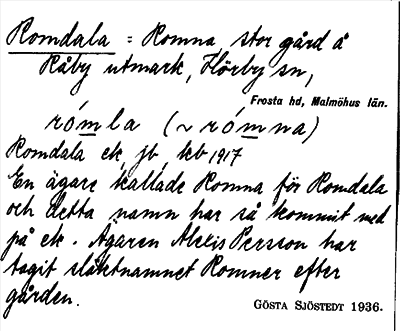 Romdala = Romna, stor gård å
Råby utmark, Hörby sn,
Frosta hd, Malmöhus län.
rómla (~ rómna)
Romdala ek, jb, kb 1917
En ägare kallade Romna för Romdala
och detta namn har så kommit ned
på ek. Ägaren Alexis Persson har
tagit släktnamnet Romner efter
gården.
GÖSTA SJÖSTEDT 1936.